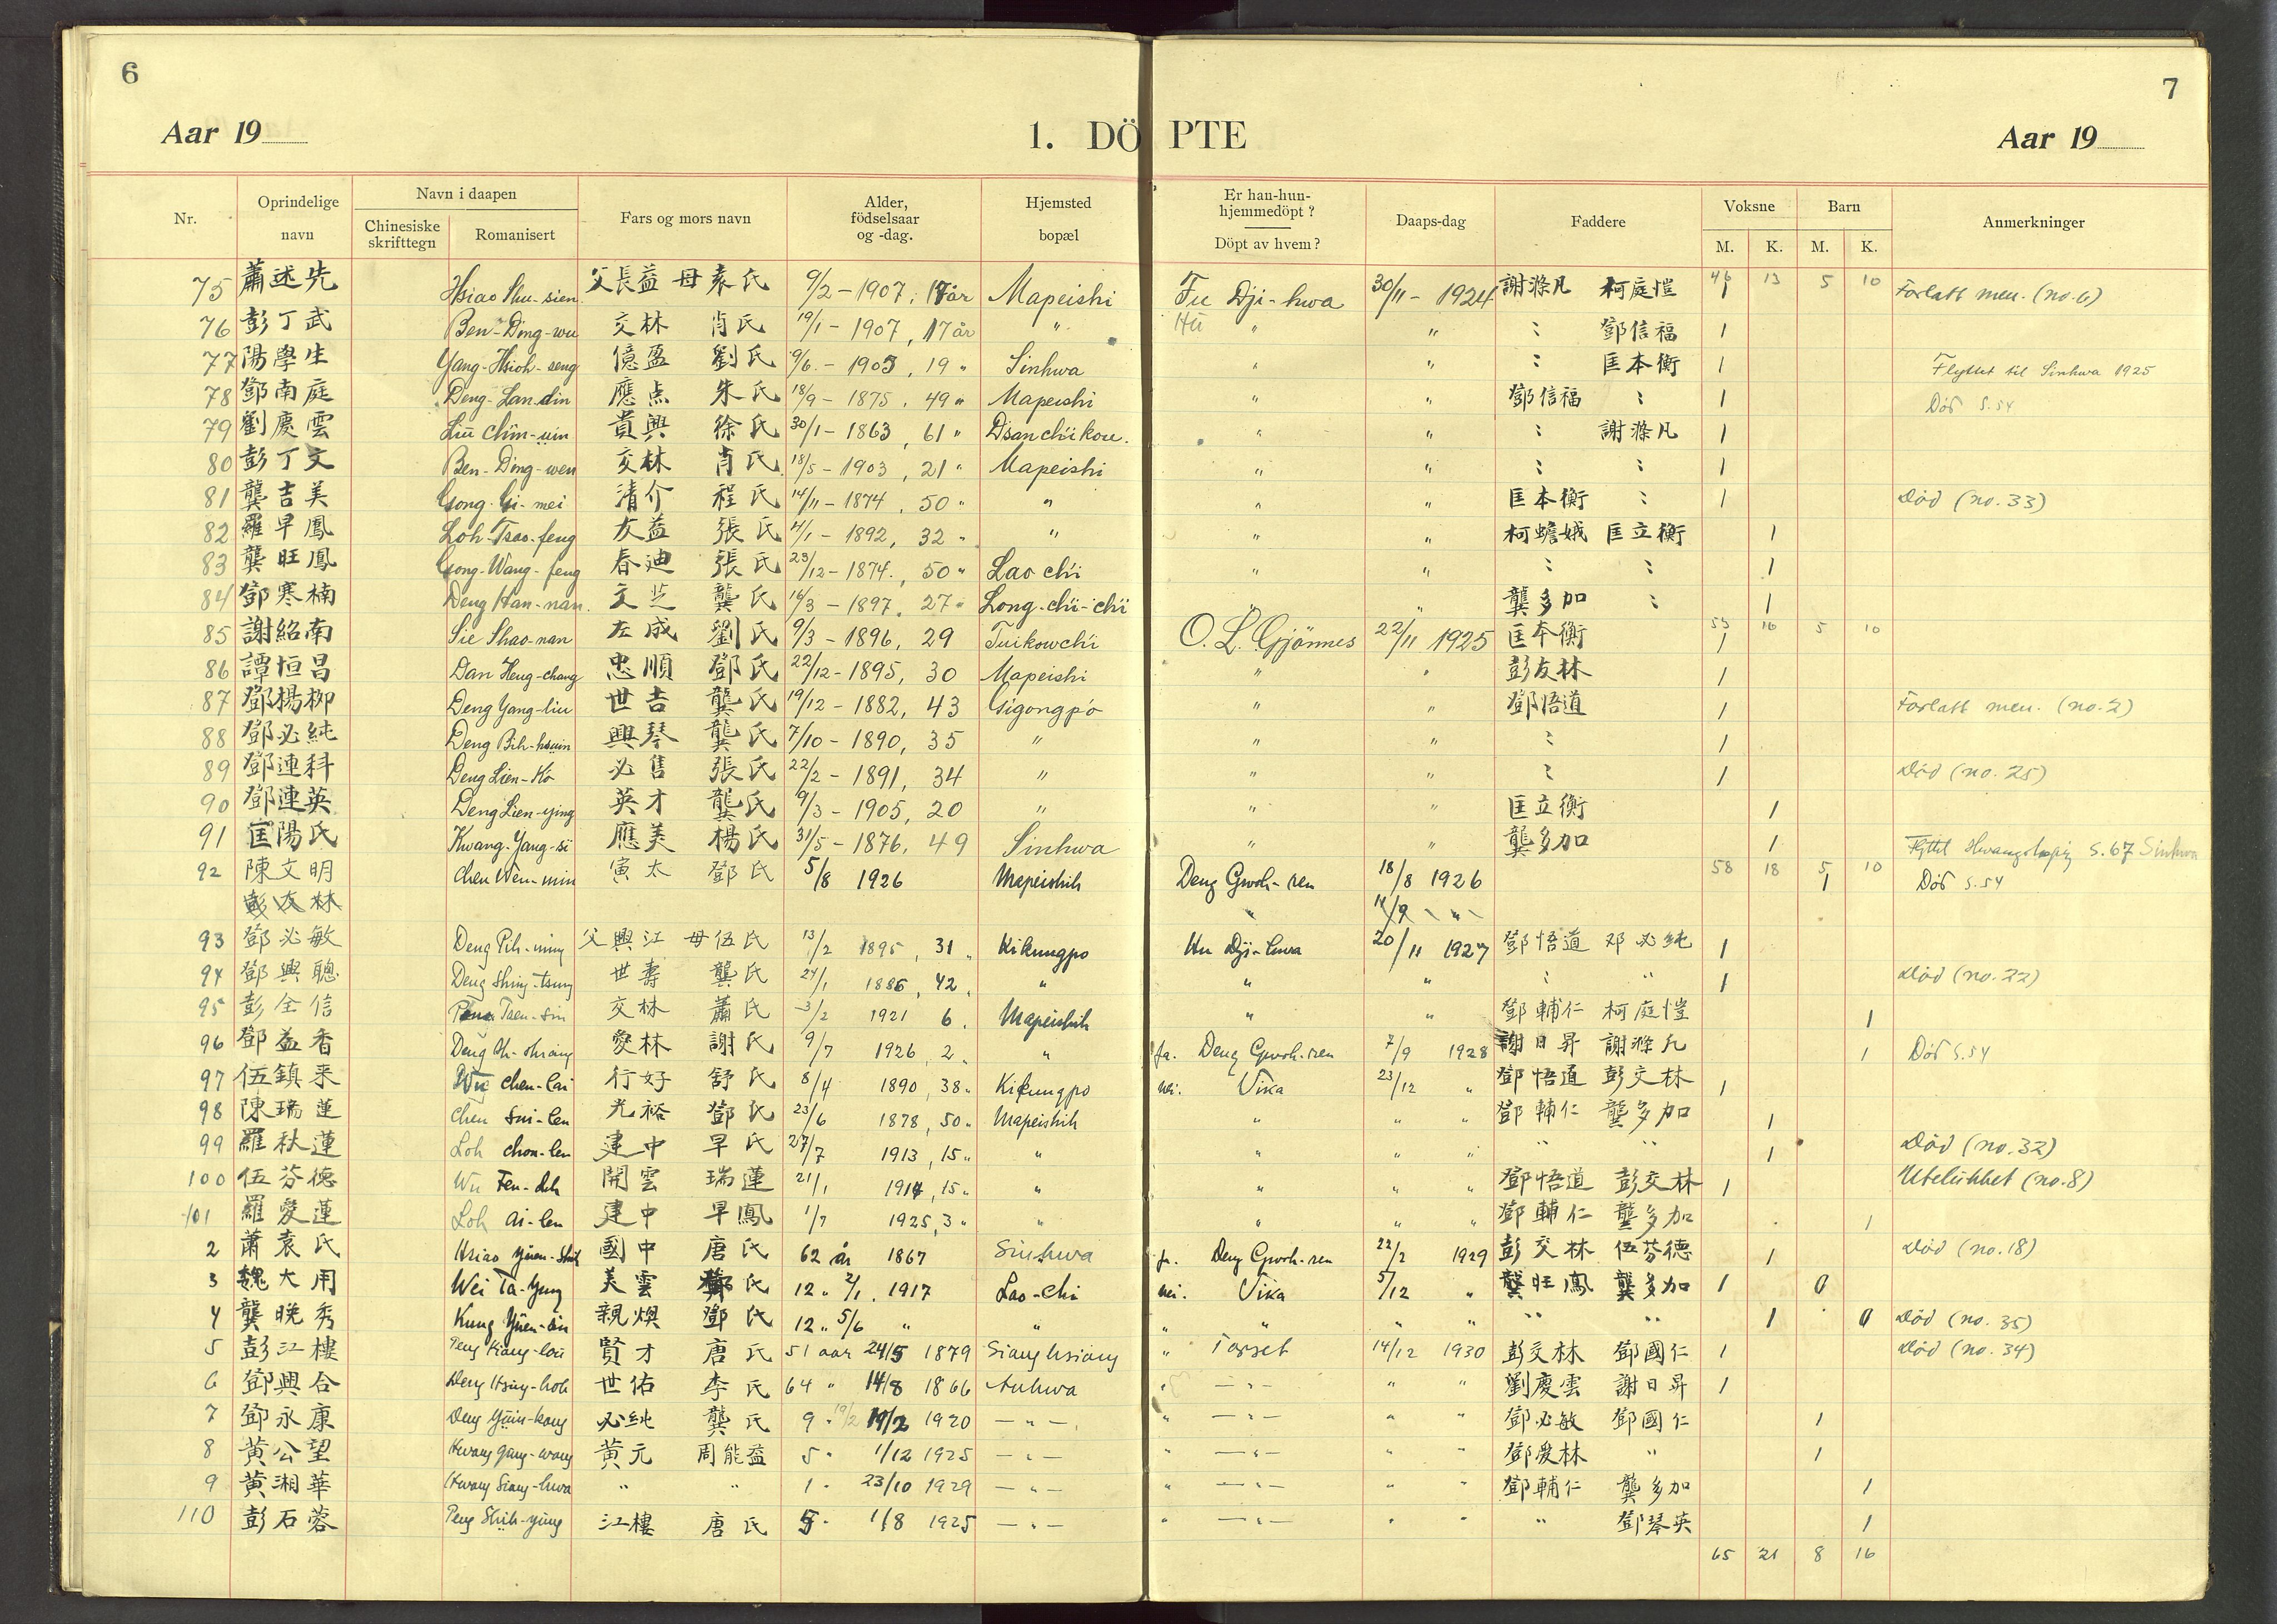 6
7
Aar 19
1. DÖPTE
Aar 19
Nr.
Oprindelige navn
Navn i daapen
Chinesiske skrifttegn
Romanisert
Fars og mors navn
Alder, födselsaar og -dag.
Hjemsted bopæl
Er han-hun-hjemmedöpt?
Döpt av hvem?
Daaps-dag
Faddere
Voksne
M. K.
Barn
M. K.
Anmerkninger
75 蕭述先 Hsiao Shu-sien 父長益 母袁氏 9/2 - 1907, 17 år Mapeishi Fu Dji-hwa 30/11 - 1924 謝滌凡 柯庭愷 46 13 5 10 1 Forlatt men. (no. 6)
76 彭丁武 Ben-Ding-wu 交林 肖氏 19/1 - 1907, 17 år " Hü " " : 鄧信福 1
77 陽學生 Yang-Hsioh-seng 億盈 劉氏 9/6 - 1905, 19 " Sinhwa " " : 匡本衡 1 Flyttet til Sinhwa 1925
78 鄧南庭 Deng-Lan-din 應点 朱氏 18/9 - 1875, 49 " Mapeishi " " 鄧信福 : 1 Död S. 54
79 劉慶雲 Liu Chin-üin 貴興 徐氏 30/1 - 1863, 61 " Dsanch'ikou. " " : 謝滌凡 1
80 彭丁文 Ben-Ding-wen 交林 肖氏 18/5 - 1903, 21 " Mapeishi " " : : 1
81 龔吉美 Gong-Gi-mei 清介 程氏 14/11 - 1874, 50 " " " " 匡本衡 : 1 Död (no. 33)
82 羅早鳳 Loh-Tsao-feng 友益 張氏 4/1 - 1892, 32 " " " " 柯蟾娥 匡立衡 1
83 龔旺鳳 Gong-Wang-feng 春迪 張氏 23/12 - 1874, 50 " Lao ch'i " " : : 1
84 鄧寒楠 Deng Han-nan. 文芝 龔氏 16/3 - 1897, 27 " Long-ch'i-ch'i " " 龔多加 : 1
85 謝紹南 Sie Shao-nan 左成 劉氏 9/3 - 1896, 29 Tuikowch'i O. L. Gjönnes 22/11 1925 匡本衡 53 16 5 10 1
86 譚恒昌 Dan Heng-chang 忠順 鄧氏 22/12 - 1895, 30 Mapeishi " " 彭友林 1
87 鄧楊柳 Deng Yang-liu 世吉 龔氏 19/12 - 1882, 43 Gigongp'o " " 鄧悟道 1 Forlatt men. (no. 2)
88 鄧必純 Deng Bih-hsuin 興琴 龔氏 7/10 - 1890, 35 " " " : 1
89 鄧連科 Deng Lien-Ko 必售 張氏 22/2 - 1891, 34 " " " : 1 Död (no. 25)
90 鄧連英 Deng Lien-ying 英才 龔氏 9/3 - 1905, 20 " " " 匡立衡 1
91 匡陽氏 Kwang-Yang-si 應美 楊氏 31/5 - 1876, 49 Sinhwa " " 龔多加 1 S. 67 Sinhwa
92 陳文明 Chen Wen-min 寅太 鄧氏 5/8 1926 Mapeishih Deng Gwoh-ren 18/8 1926 58 18 5 10 1 Död S. 54
彭友林 " 11/9 "
93 鄧必敏 Deng Pih-ming 父興江 母伍氏 13/2 1895, 31 " Kikungpo Hu Dji-hwa 20/11 1927 鄧悟道 邓必純 1
94 鄧興聰 Deng Shing-tsung 世壽 龔氏 24/1 1886, 42 " " " " : " 1 Död (no. 22)
95 彭全信 Tsen-sin 交林 蕭氏 3/2 1921 6 " Mapeishih " " 鄧輔仁 柯庭愷 1
96 鄧益香 Deng Ih-shiang 愛林 謝氏 9/7 1926, 2 " " ja. Deng Gwoh-ren 7/9 1928 謝日昇 謝滌凡 1 Död S. 54
97 伍鎮来 Wu Chen-lai 行好 舒氏 8/4 1890, 38 " Kikungpo nei. Vika 23/12 " 鄧悟道 彭交林 1
98 陳瑞蓮 Chen Sui-len 光裕 鄧氏 23/6 1878, 50 " Mapeishih " " " 鄧輔仁 龔多加 1
99 羅秋蓮 Loh Chou-len 建中 早氏 27/7 1913, 15 " " " " " " " 1 Död (no. 32)
100 伍芬德 Wu Fen-deh 開雲 瑞蓮 21/1 1914, 15 " " " " " 鄧悟道 彭交林 1 Utelukket (no. 8)
101 羅愛蓮 Loh Ai-len 建中 早鳳 1/7 1925, 3 " " " " " 鄧輔仁 龔多加 1
2 蕭袁氏 Hsiao Yüen-Shih 國中 唐氏 62 år 1867 Sinhwa ja. Deng Gwoh-ren 22/2 1929 彭交林 伍芬德 1 Död (no. 18)
3 魏大用 Wei Ta-Yung 美雲 鄧氏 12 " 2/1. 1917 Lao-chi nei. Vika 5/12 " 龔旺鳳 龔多加 1 0
4 龔晚秀 Kung Yüen-siu 親煥 鄧氏 12 " 5/6 " " " " " " " " 1 0 Död (no. 35)
5 彭江樓 Peng Kiang-lou 賢才 唐氏 51 aar 24/5 1879 Siang hsiang " Torset 14/12 1930 彭交林 鄧國仁 1 Död (no. 34)
6 鄧興合 Deng Hsing-hoh 世佑 李氏 64 " 14/8 1866 Anhwa " — " — " " 劉慶雲 謝日昇 1
7 鄧永康 Deng Yüin-kang 必純 龔氏 9 " 19/2 19/2 1920 — " — " — " — " " 鄧必敏 鄧國仁 1
8 黄公望 Hwang Gung-wang 黄元 周能益 5 " 1/12 1925 — " — " — " — " " 鄧愛林 " 1
9 黄湘華 Hwang Siang-hwa " " 1 " 23/10 1929 — " — " — " — " " 鄧輔仁 龔多加 1
110 彭石蓉 Peng Shih-yüng 江樓 唐氏 5 " 1/8 1925 — " — " — " — " " " 鄧琴英 1
65 21 8 16